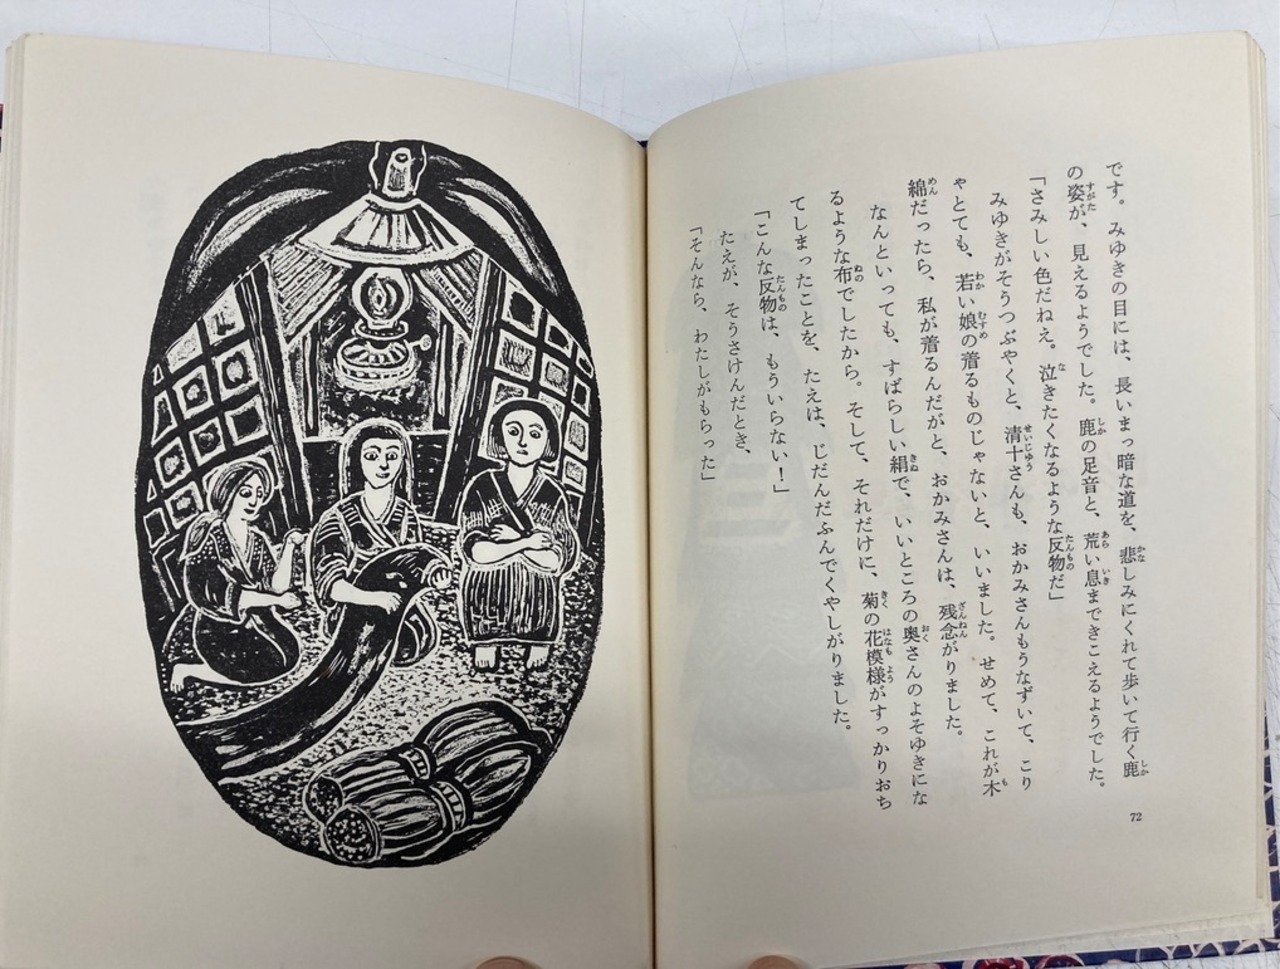 です。みゆきの目には、長いまっ暗な道を、悲しみにくれて歩いて行く鹿
の姿が、見えるようでした。鹿の足音と、荒い息まできこえるようでした。
「さみしい色だねえ。泣きたくなるような反物だ」
みゆきがそうつぶやくと、清十さんも、おかみさんもうなずいて、こり
ゃとても、若い娘の着るものじゃないと、いいました。せめて、これが木
綿だったら、私が着るんだがと、おかみさんは、残念がりました。
なんといっても、すばらしい絹で、いいところの奥さんのよそゆきにな
るような布でしたから。そして、それだけに、菊の花模様がすっかりおち
てしまったことを、たえは、じだんだふんでくやしがりました。
「こんな反物は、もういらない！」
たえが、そうさけんだとき、
「そんなら、わたしがもらった」
72